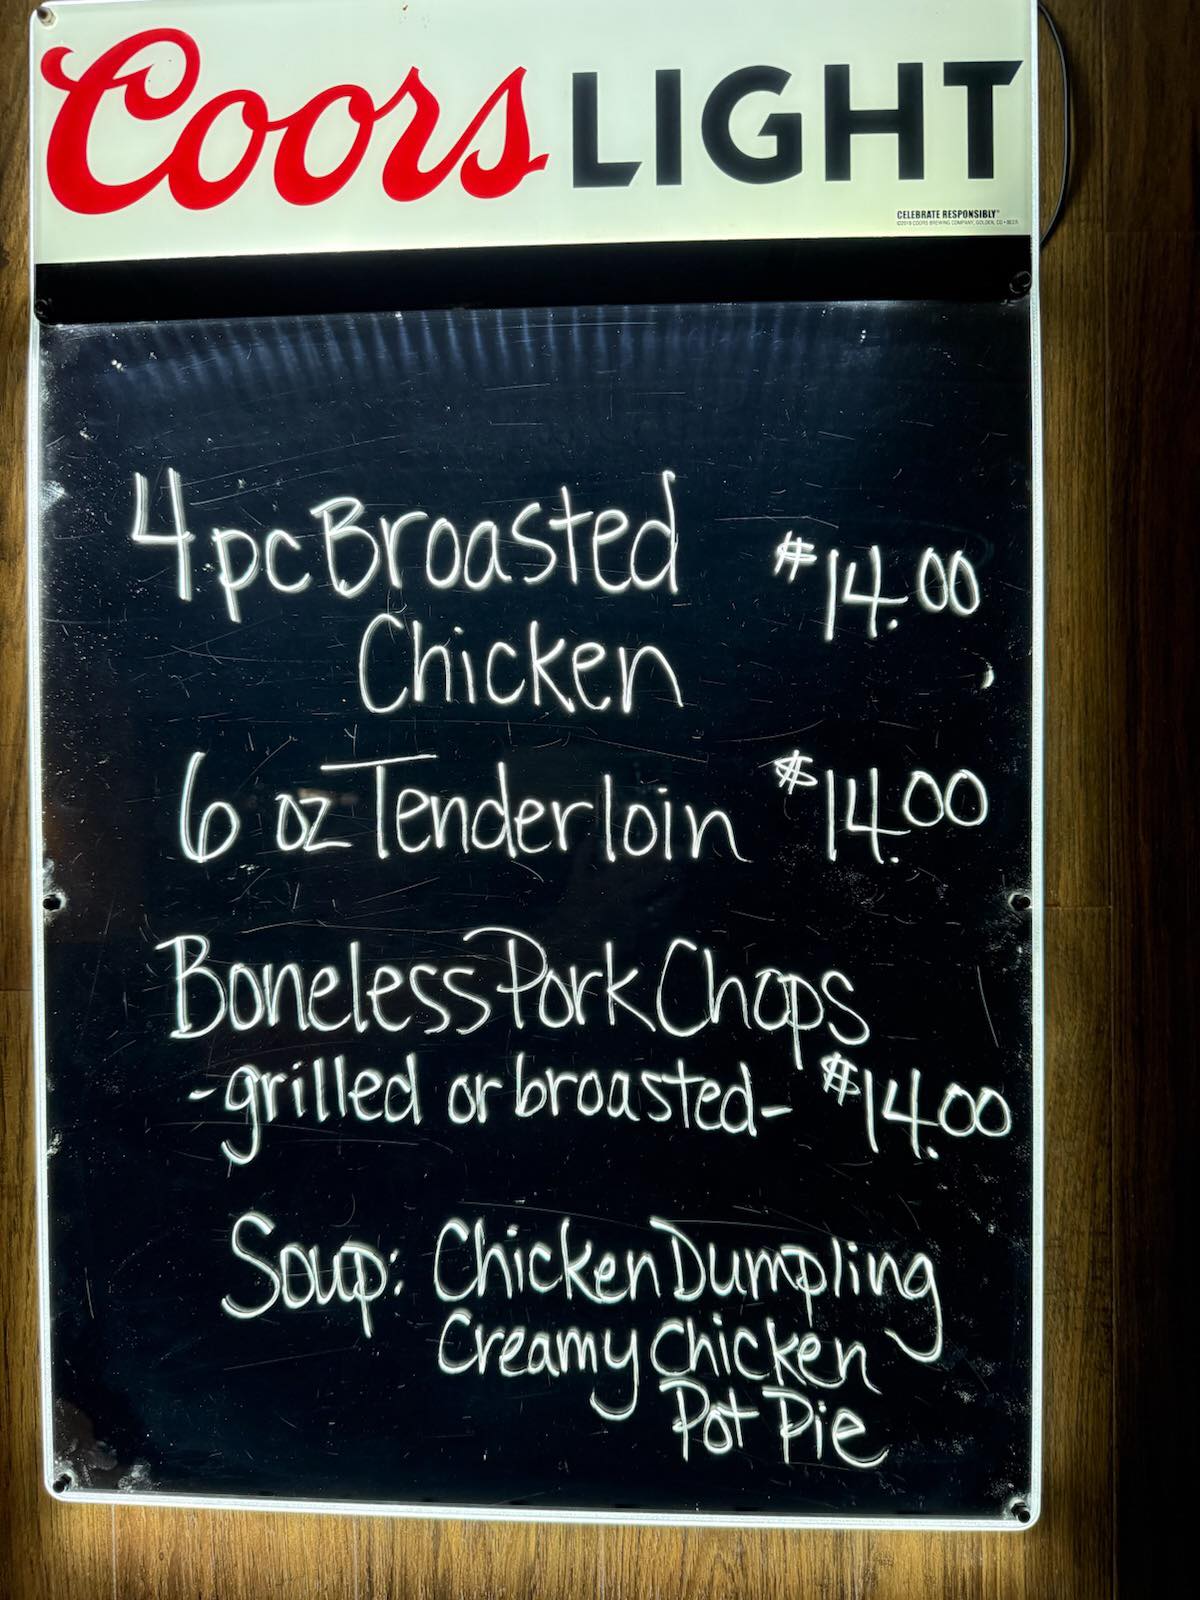 Coors LIGHT
CELEBRATE RESPONSIBLY®
©2019 COORS BREWING COMPANY, GOLDEN, CO • BEER
4 pc Broasted $14.00
Chicken
6 oz Tenderloin $14.00
Boneless Pork Chops
-grilled or broasted- $14.00
Soup: Chicken Dumpling
Creamy Chicken
Pot Pie